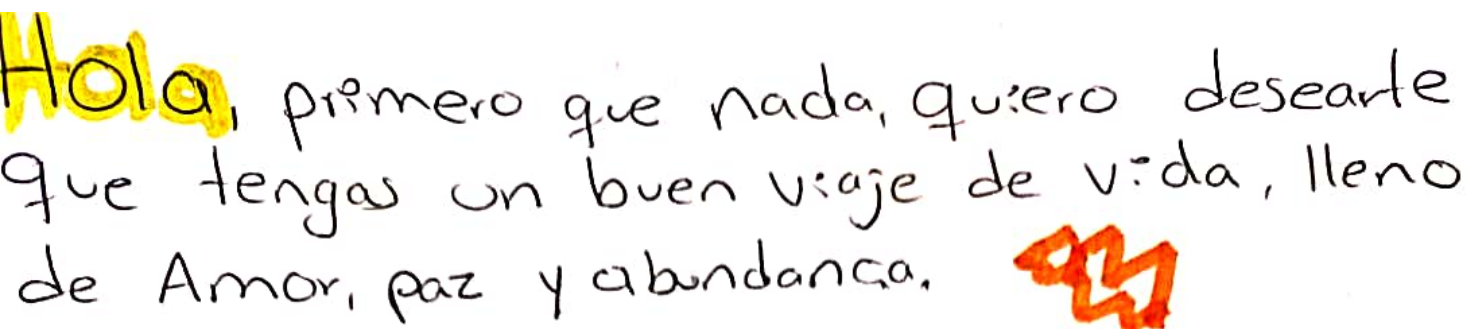 Hola, primero que nada, quiero desearte
que tengas un buen viaje de vida, lleno
de Amor, paz y abundanca.